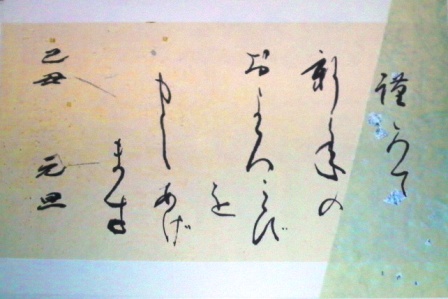 謹んで
新年の
およろこび
を
申し
あげ
ます
己丑 元旦